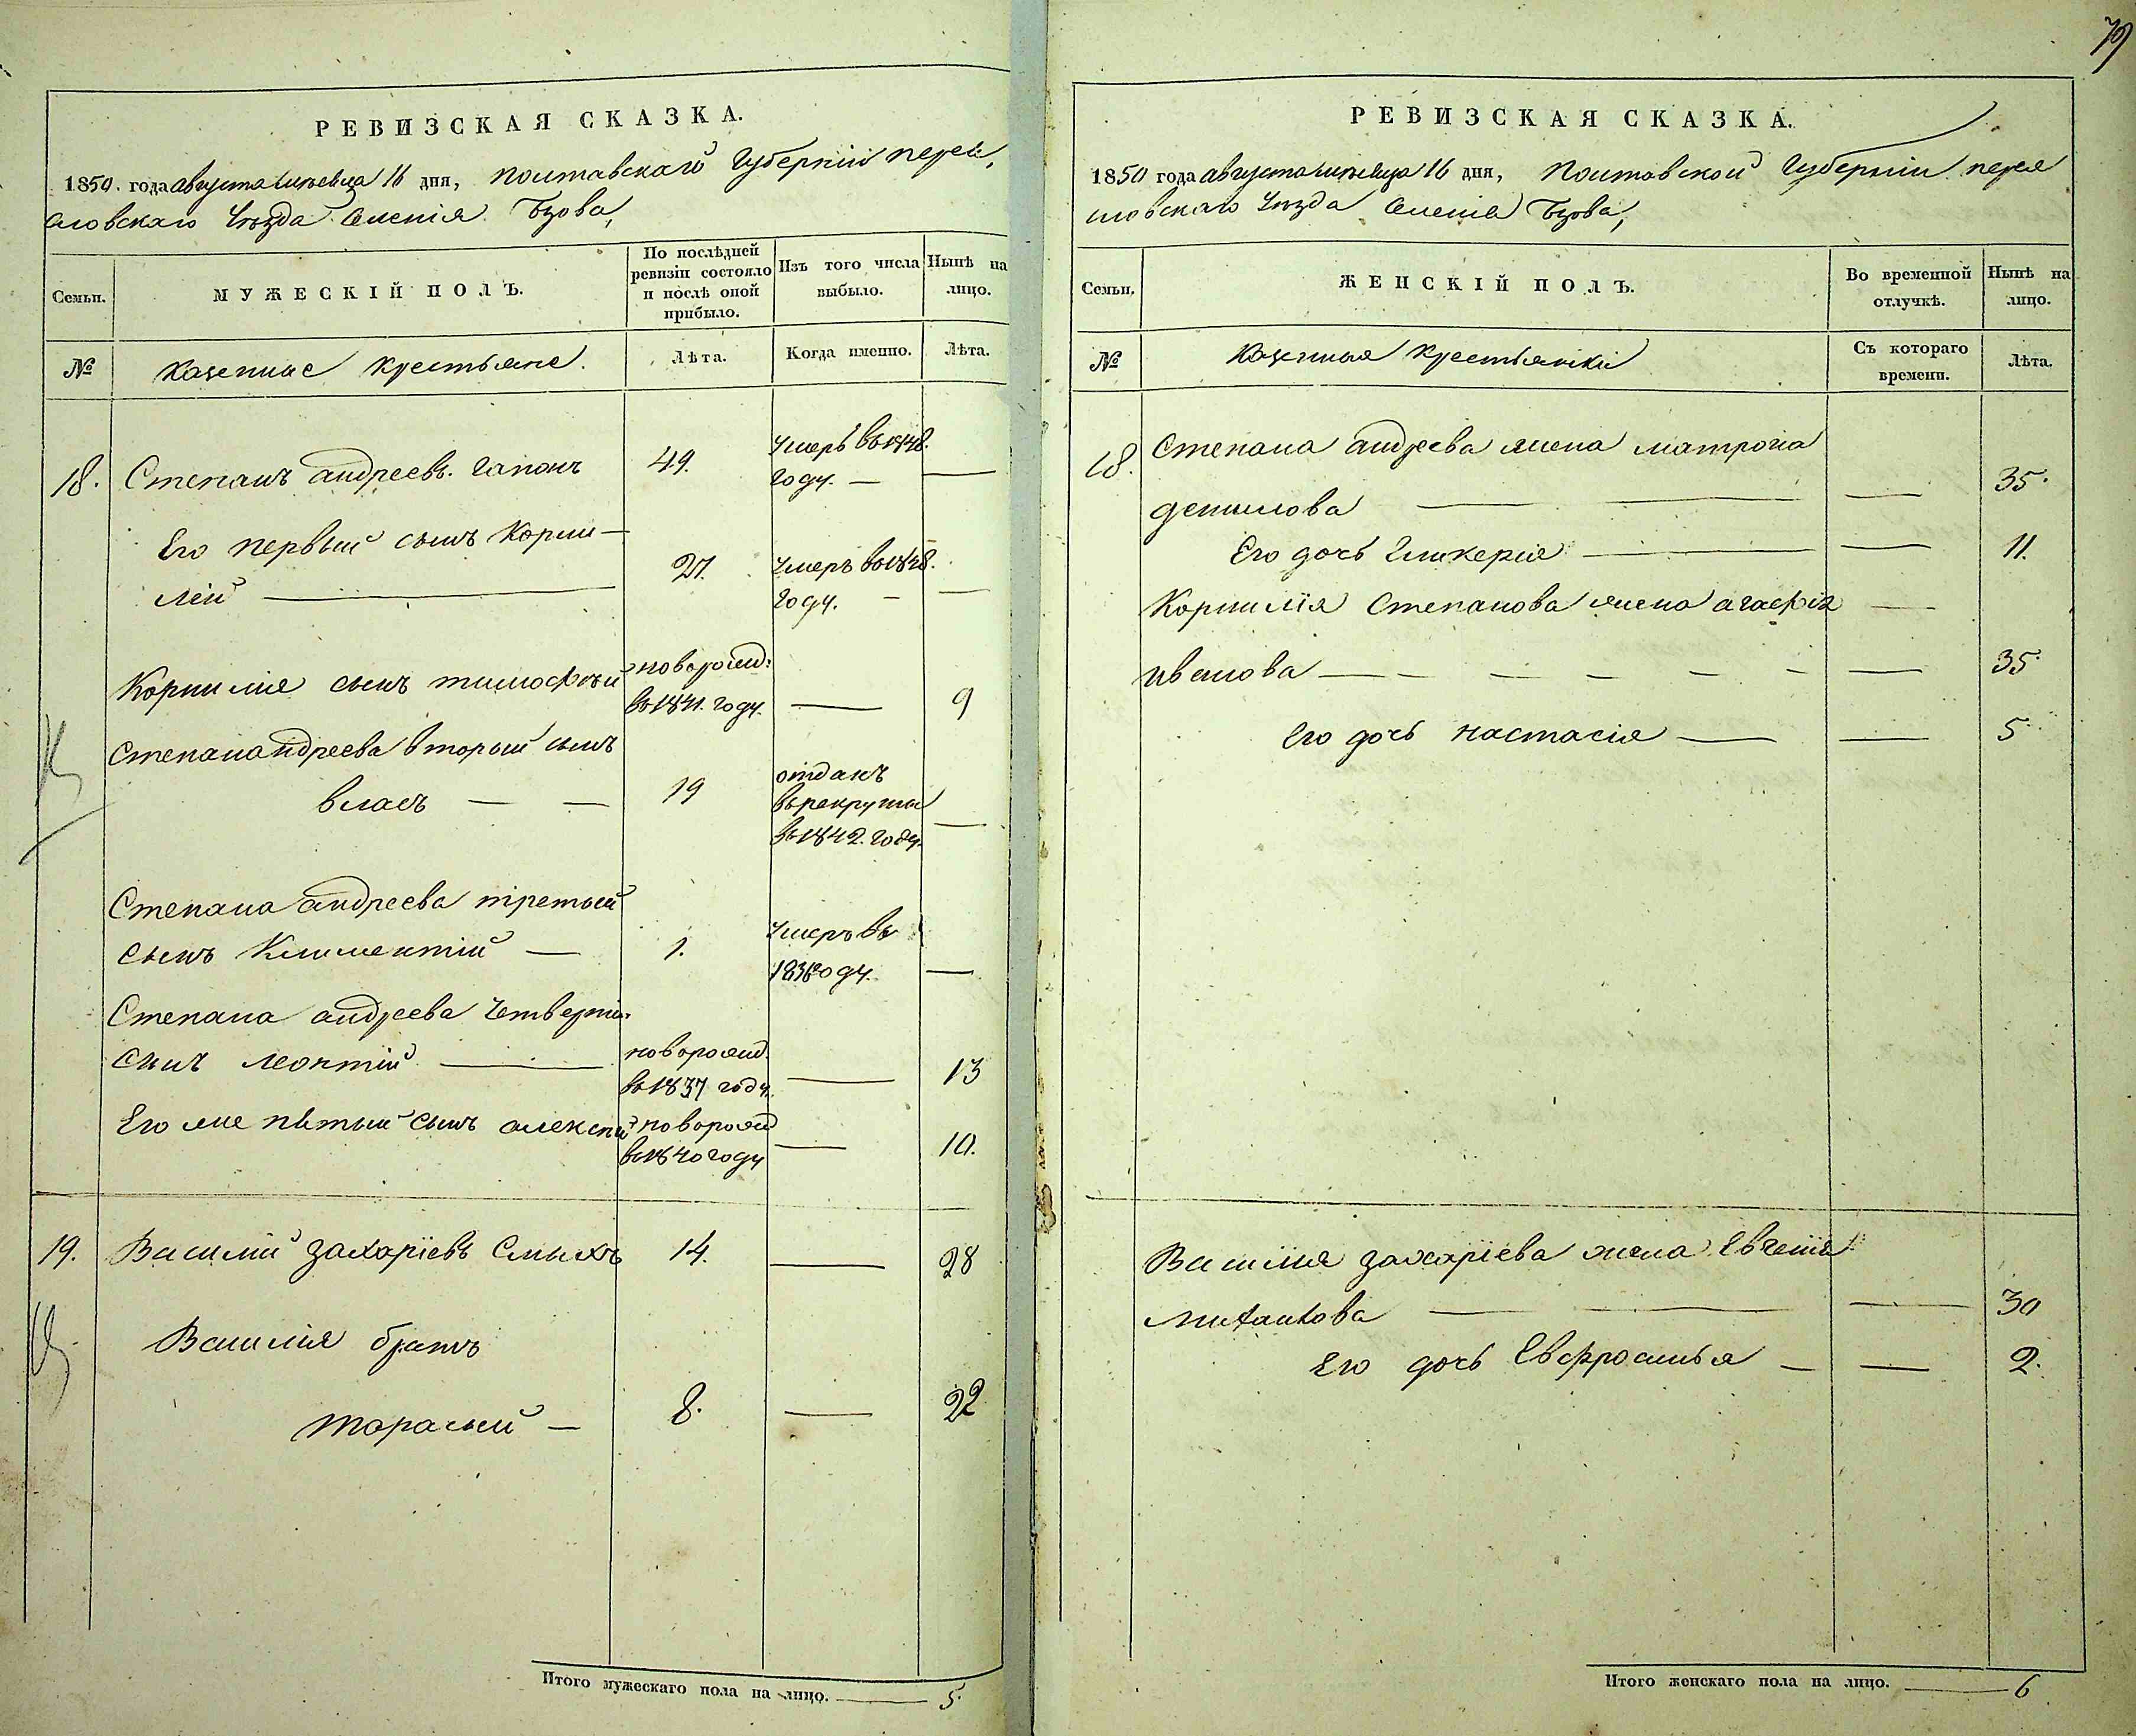 79
РЕВИЗСКАЯ СКАЗКА.
1850. года августа месяца 16 дня, Полтавской Губернии перея
словскаго Уезда Селения Бзова,
Семьи.
МУЖЕСКІЙ ПОЛЪ.
По послѣдней ревизіи состояло и послѣ оной прибыло.
Изъ того числа выбыло.
Нынѣ на лицо.
№
Казенные Крестьяне.
Лѣта.
Когда именно.
Лѣта.
18. Степанъ андреевъ. Гапонъ 49. умеръ въ 1848.
году. —
Его первый сынъ Корни—
лій — 27. умеръ въ 1848.
году. — —
Корнилія сынъ тимофѣй новорожд:
въ 1841. году. — 9
Степана андреева вторый сынъ
власъ — — 19 отданъ
въ рекруты
въ 1842. году. —
Степана андреева третьий
сынъ Климентій — 1. умеръ въ
году. —
Степана андреева Четверти
сынъ леонтій — новорожд.
въ 1837 году. — 13
Его же пятый сынъ алексѣй новорожд
въ 1840 году — 10.
19. Василий захаріевъ Смыкъ 14. — 28
Василія братъ
тарасий — 8. — 22
Итого мужескаго пола на лицо. — 5.
РЕВИЗСКАЯ СКАЗКА.
1850 года августа месяца 16 дня, Полтавской Губернии перея
словскаго Уезда Селения Бзова,
Семьи.
ЖЕНСКІЙ ПОЛЪ.
Во временной отлучкѣ.
Нынѣ на лицо.
№
Казенныя Крестьянки
Съ котораго времени.
Лѣта.
18. Степана андреева жена матрона
данилова — — — 35.
Его дочь Гликерія — — 11.
Корнилія Степанова жена агафія —
иванова — — — — — — — 35.
Его дочь настасія — — 5
Василия захаріева жена Евгенія
Михайлова — — — 30
Его дочь Евфросинья — — 2.
Итого женскаго пола на лицо. — 6